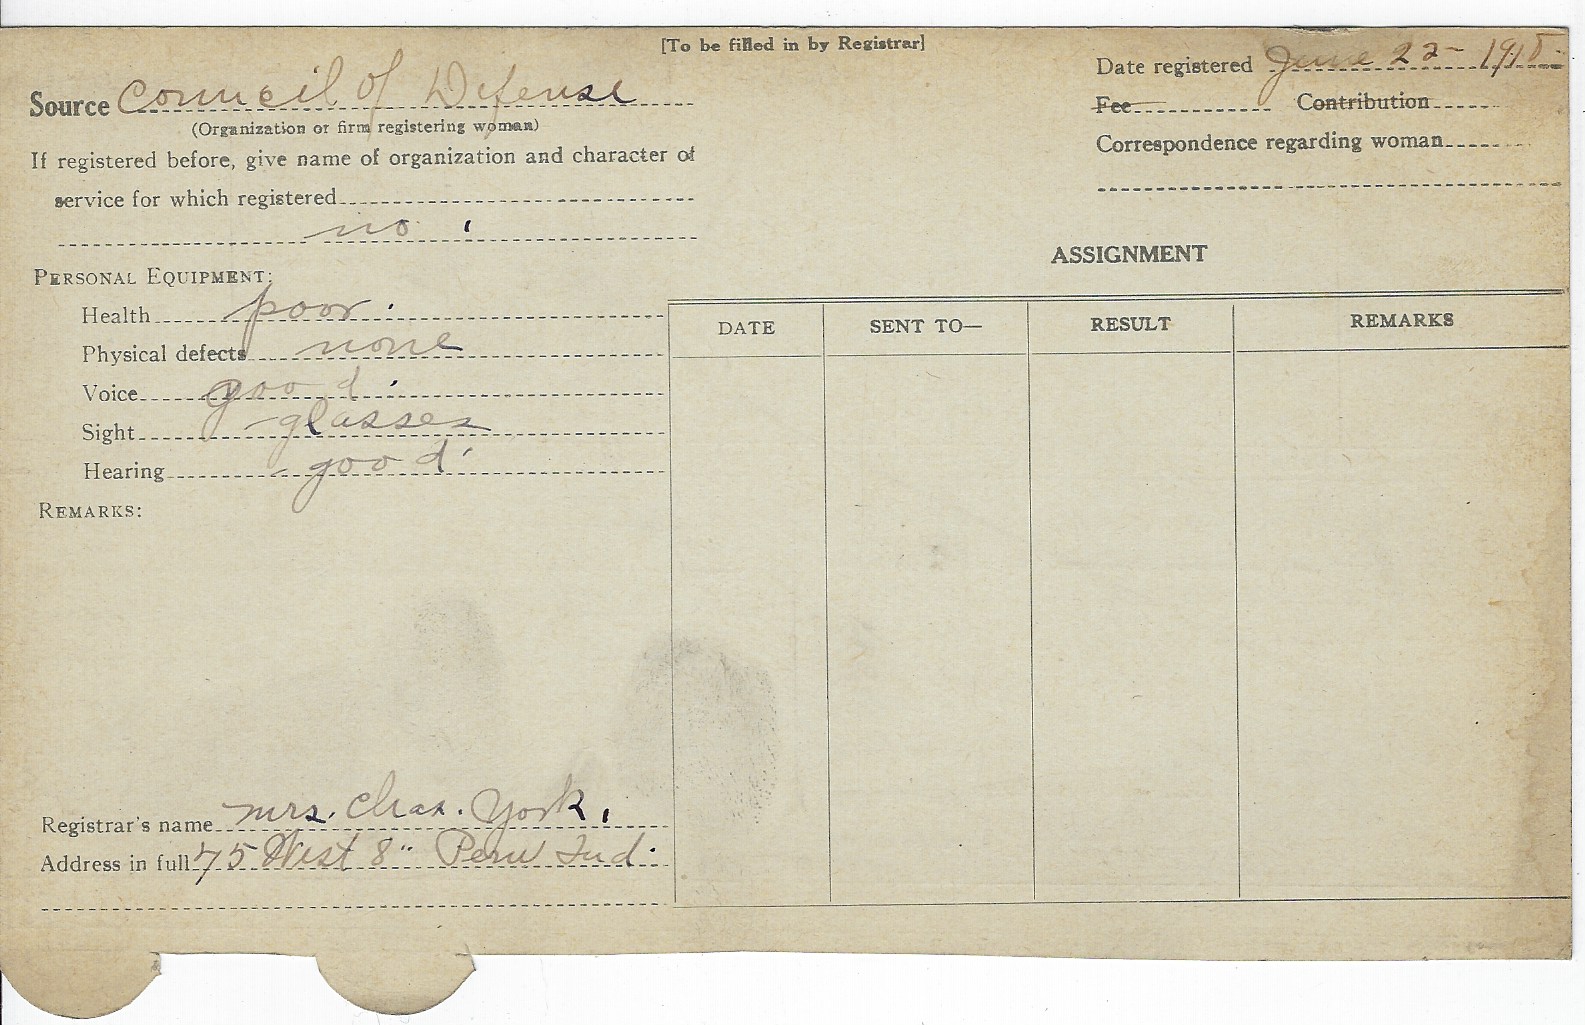 [To be filled in by Registrar]
Date registered June 22- 1918
Source Council of Defense
(Organization or firm registering woman)
Fee Contribution
If registered before, give name of organization and character of
service for which registered
no
Correspondence regarding woman
PERSONAL EQUIPMENT:
Health poor
Physical defects none
Voice good
Sight glasses
Hearing good
REMARKS:
ASSIGNMENT
DATE SENT TO— RESULT REMARKS
Registrar's name Mrs. Chas. York.
Address in full 75 West 8" Peru Ind.